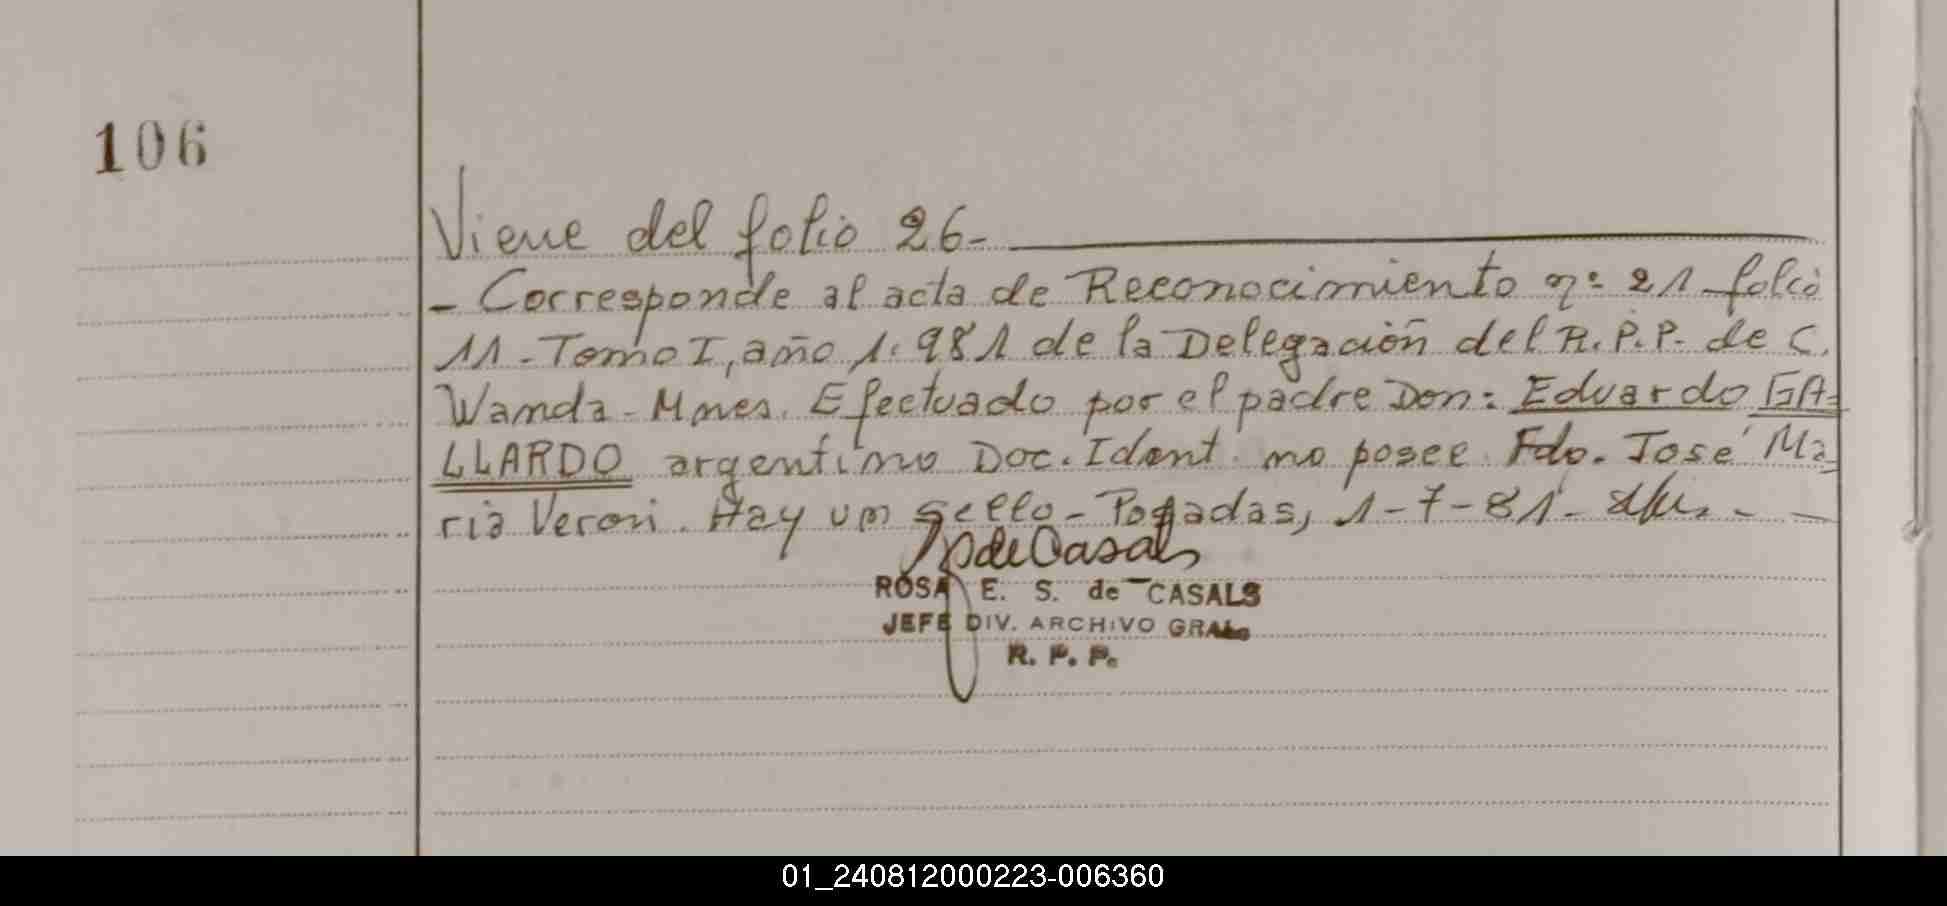 106
Viene del folio 26-
- Corresponde al acta de Reconocimiento nº 21 folio
11 - Tomo I, año 1.981 de la Delegación del R.P.P. de C.
Wanda - Mnes. Efectuado por el padre Don: Eduardo GA-
LLARDO argentino Doc. Ident. no posee. Fdo. José Ma-
ria Veron. Hay un sello - Posadas, 1-7-81-
de Casals
ROSA E. S. de CASALS
JEFE DIV. ARCHIVO GRAL.
R. P. P.
01_240812000223-006360